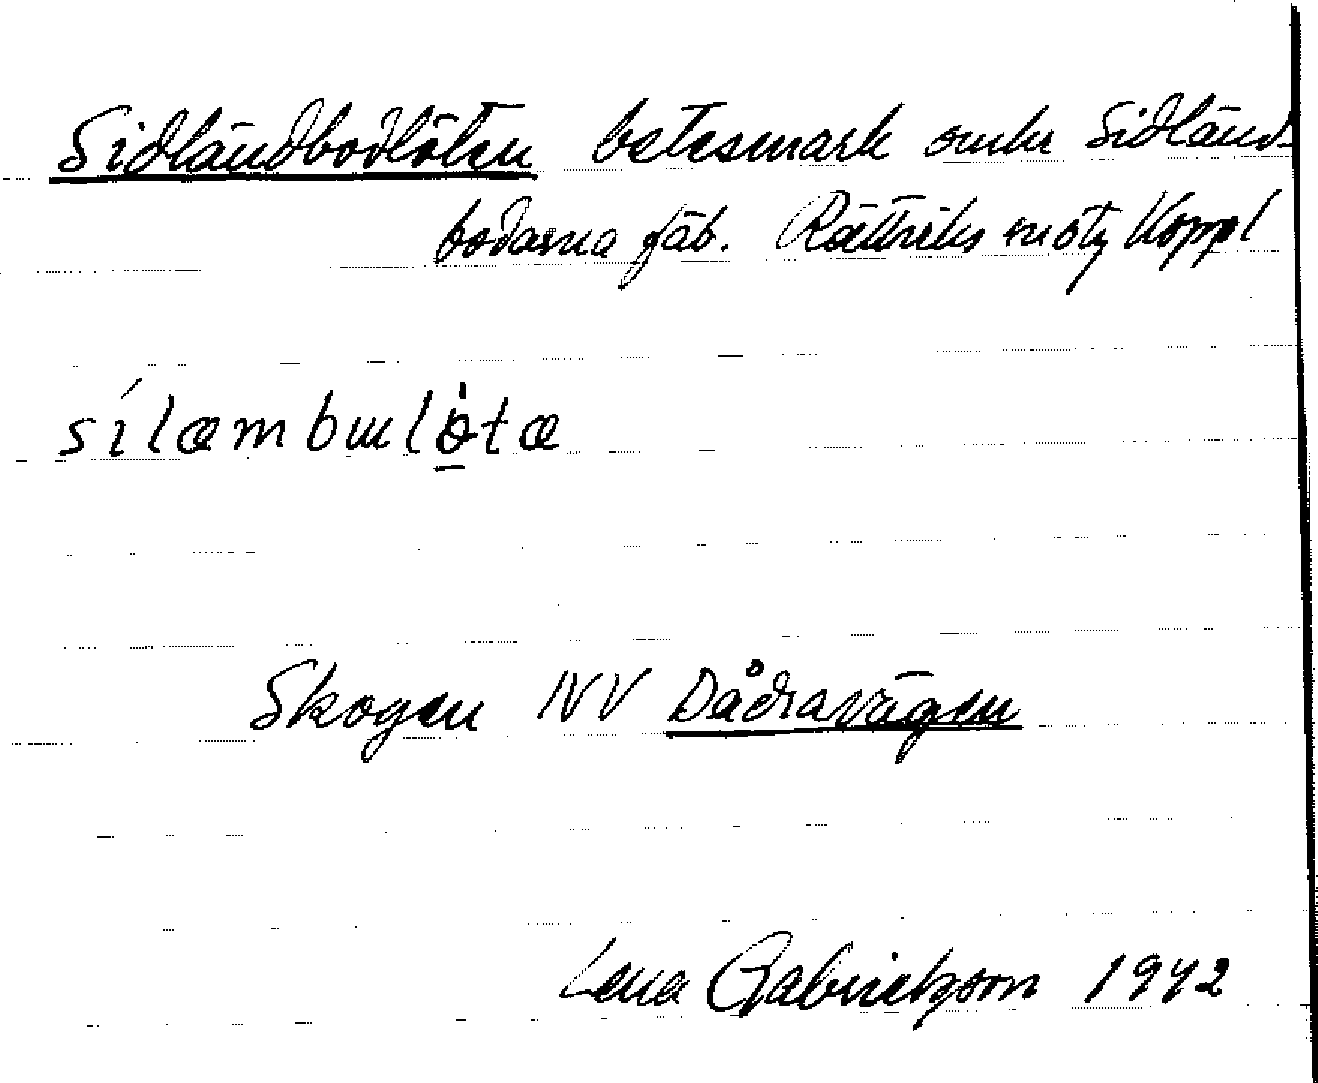 Sidländbodlöten betesmark omkr Sidländ-
bodarna fäb. Rättviks
sílæmbɯlòtæ
Skogen NV Dådravägen
Lena Gabrielsson 1942